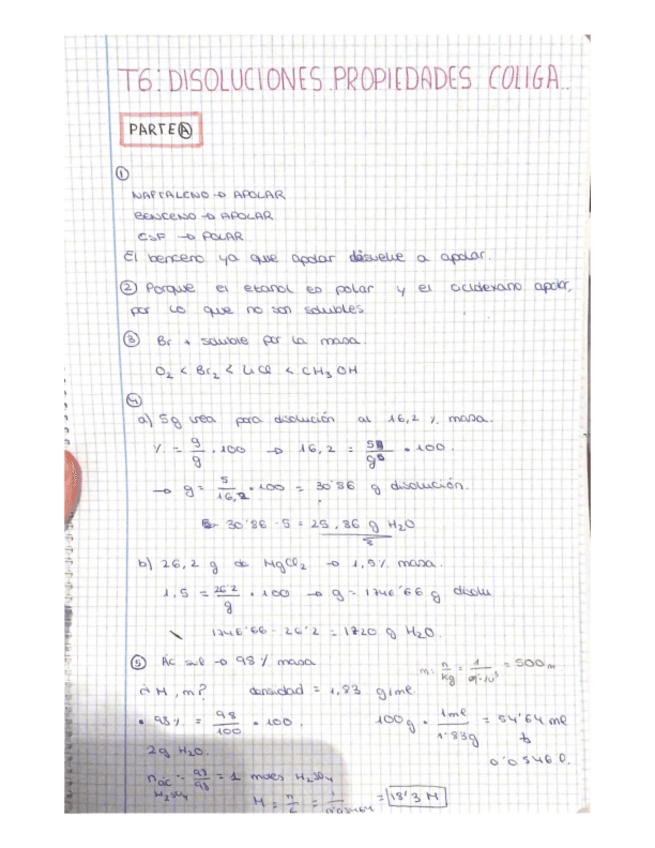 T6: DISOLUCIONES. PROPIEDADES COLIGA..
PARTE A
①
NAFTALENO → APOLAR
BENCENO → APOLAR
CSF → POLAR
El benceno ya que apolar disuelve a apolar.
② Porque el etanol es polar y el ciclohexano apolar,
por lo que no son solubles
③ Br + soluble por la masa.
O₂ < Br₂ < LiCl < CH₃OH
④
a) 5g urea para disolución al 16,2 % masa.
% = g/g · 100 → 16,2 = 5g/g · 100.
→ g = 5/16,2 · 100 = 30'86 g disolución.
30'86 - 5 = 25,86 g H₂O
b) 26,2 g de MgCl₂ → 1,5% masa.
1,5 = 26'2/g · 100 → g = 1746'66 g disolu
1746'66 - 26'2 = 1720 g H₂O.
⑤ Ác sul → 98% masa
m = n/kg = 1/ = 500 m
¿M, m? densidad = 1,83 g/ml
• 98% = 98/100 · 100.
100g · 1ml/1'83g = 54'64 ml
2g H₂O.
0'0546 l.
n ác H₂SO₄ = 98/98 = 1 moles H₂SO₄
M = n/L = 1/0'05464 = 18'3 M